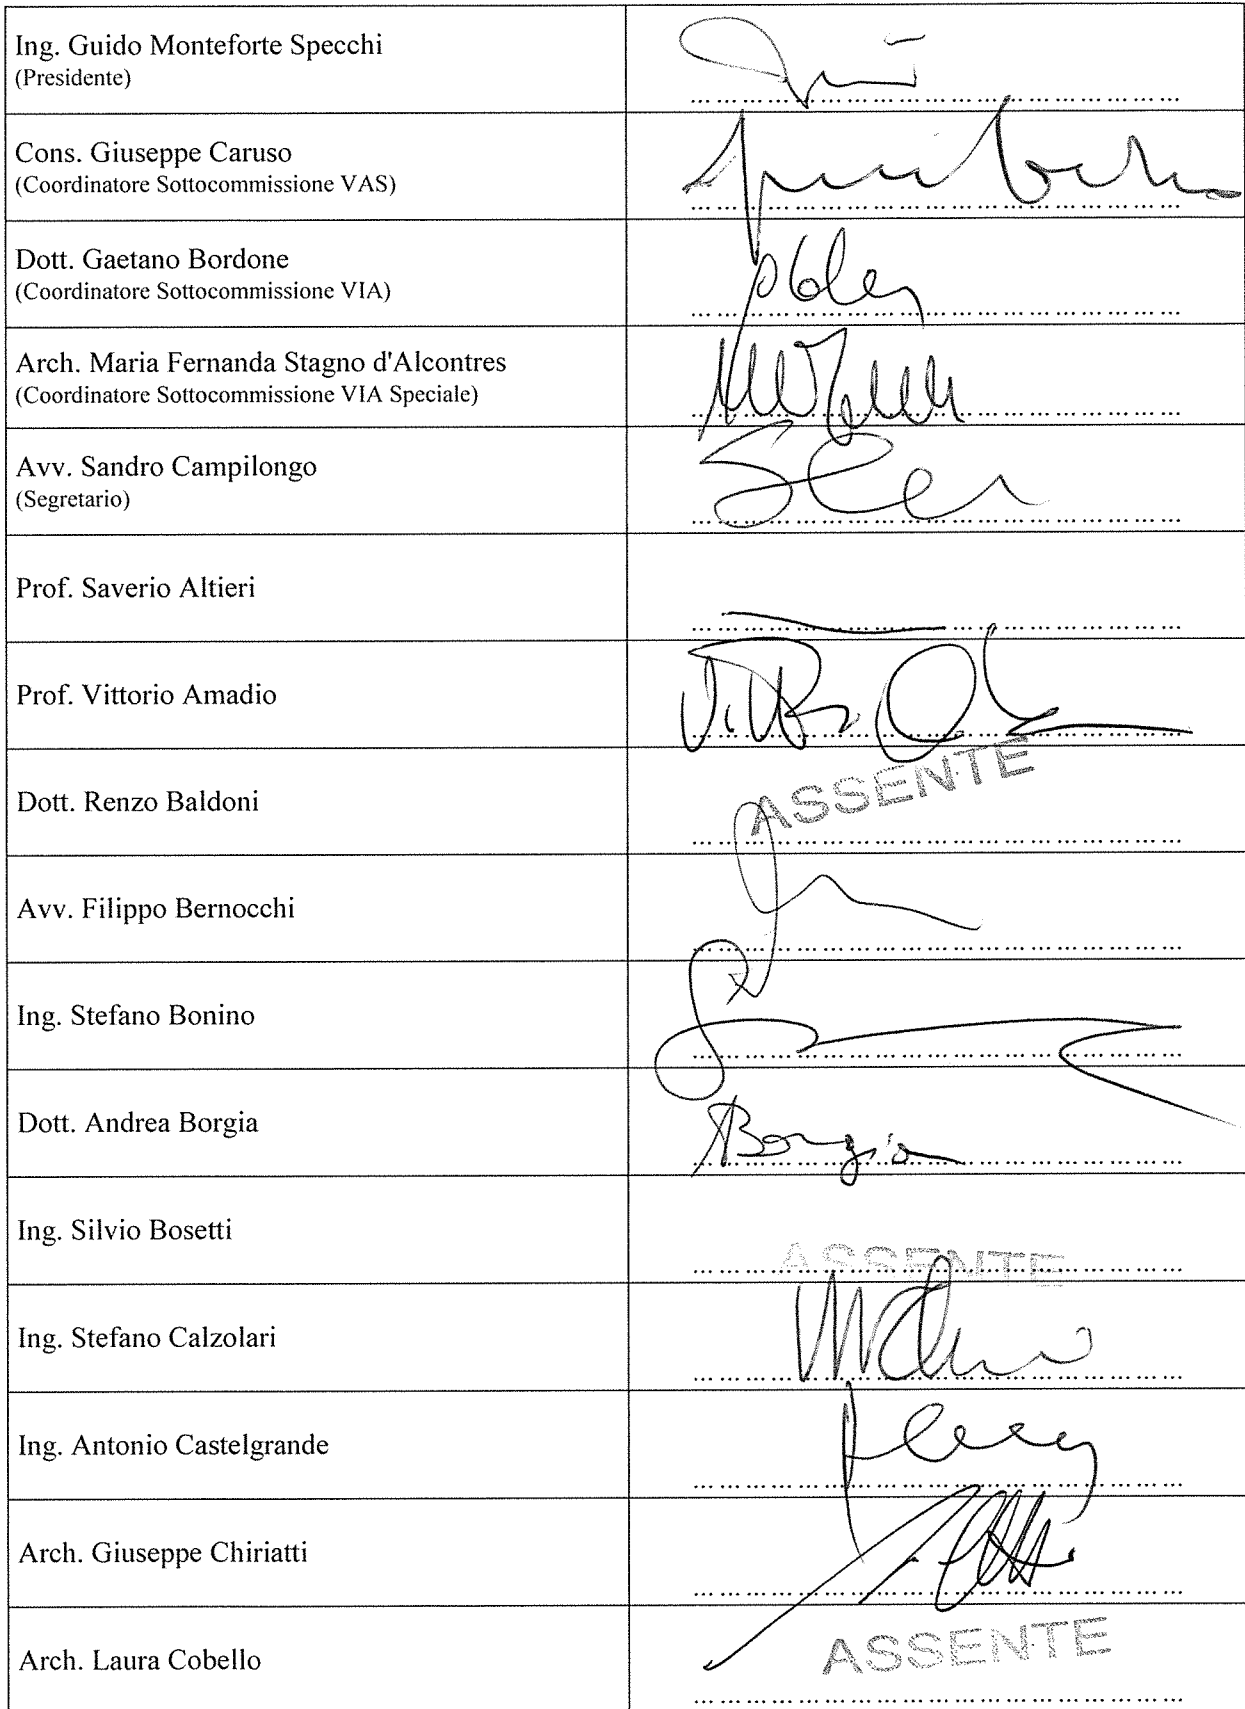 Ing. Guido Monteforte Specchi
(Presidente)
Cons. Giuseppe Caruso
(Coordinatore Sottocommissione VAS)
Dott. Gaetano Bordone
(Coordinatore Sottocommissione VIA)
Arch. Maria Fernanda Stagno d'Alcontres
(Coordinatore Sottocommissione VIA Speciale)
Avv. Sandro Campilongo
(Segretario)
Prof. Saverio Altieri
Prof. Vittorio Amadio
Dott. Renzo Baldoni
ASSENTE
Avv. Filippo Bernocchi
Ing. Stefano Bonino
Dott. Andrea Borgia
Borgia
Ing. Silvio Bosetti
ASSENTE
Ing. Stefano Calzolari
Ing. Antonio Castelgrande
Arch. Giuseppe Chiriatti
Arch. Laura Cobello
ASSENTE